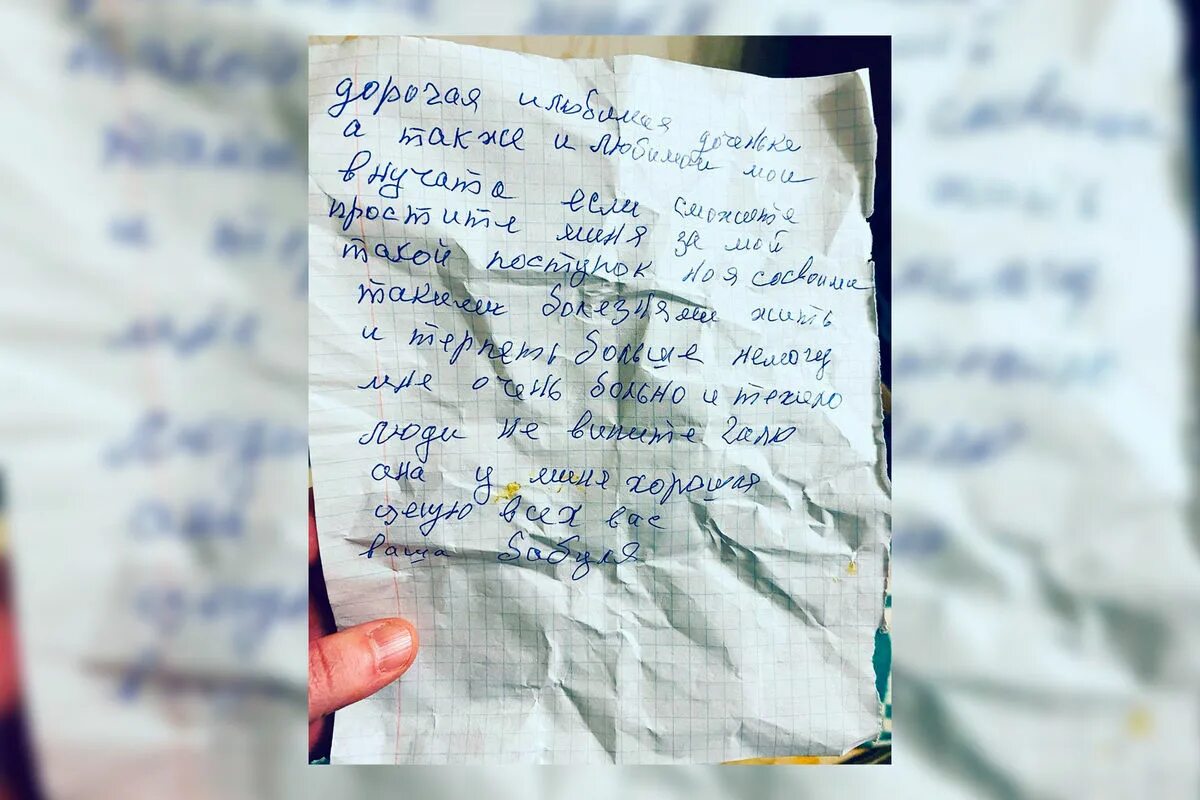 дорогая илюбимая доченька
а также и любимаи мои
внучата если сможите
простите миня за мой
такой поступок ноя сосвоими
такими болезнями жить
и терпеть больше немогу
мне очень больно и тежело
люди не вините Галю
она у миня хорошая
целую всех вас
ваша бабуля